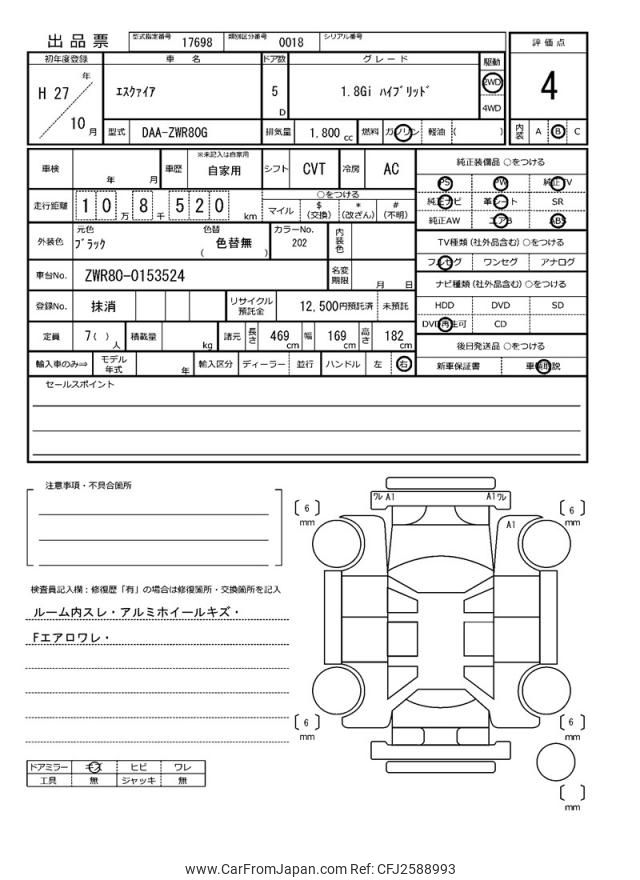 出品票 型式指定番号 17698 類別区分番号 0018 シリアル番号
評価点
4
内装 A B C
初年度登録 車名 ドア数 グレード 駆動
H 27 年 10 月
エスクァイア 5 D 1.8Gi ハイブリッド 2WD
4WD
型式 DAA-ZWR80G 排気量 1,800 cc 燃料 ガソリン 軽油 ( )
車検 年 月 車歴 ※未記入は自家用 自家用 シフト CVT 冷房 AC
走行距離 1 0 万 8 千 5 2 0 km
○をつける
マイル $ (交換) * (改ざん) # (不明)
外装色 元色 ブラック 色替 ( 色替無 ) カラーNo. 202 内装色
車台No. ZWR80-0153524 名変期限 月 日
登録No. 抹消 リサイクル預託金 12,500円預託済 未預託
定員 7( ) 人 積載量 kg 諸元 長さ 469 cm 幅 169 cm 高さ 182 cm
輸入車のみ⇒ モデル年式 年 輸入区分 ディーラー 並行 ハンドル 左 右
純正装備品 ○をつける
PS PW 純正TV
純正ナビ 革シート SR
純正AW エアB ABS
TV種類 (社外品含む) ○をつける
フルセグ ワンセグ アナログ
ナビ種類 (社外品含む) ○をつける
HDD DVD SD
DVD再生可 CD
後日発送品 ○をつける
新車保証書 車輌取説
セールスポイント
注意事項・不具合箇所
検査員記入欄：修復歴「有」の場合は修復箇所・交換箇所を記入
ルーム内スレ・アルミホイールキズ・
Fエアロワレ・
ドアミラー キズ ヒビ ワレ
工具 無 ジャッキ 無
ワレ A1 A1 ワレ
A1
6 mm
6 mm
6 mm
6 mm
mm
www.CarFromJapan.com Ref: CFJ2588993